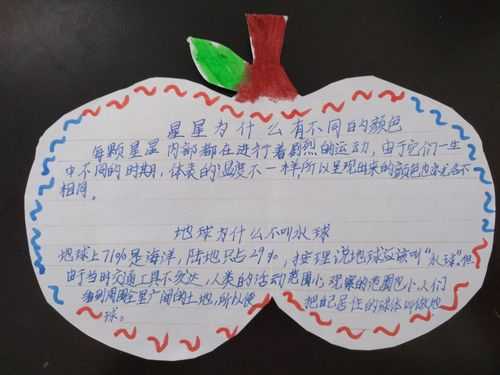 星星为什么有不同的颜色
每颗星星内部都在进行着剧烈的运动,由于它们一生
中不同的时期,体表的温度不一样所以呈现出来的颜色也亦各不
相同。
地球为什么不叫水球
地球上71%是海洋,陆地只占29%,按理说地球应该叫“水球”。但
由于当时交通工具不发达,人类的活动范围小观察的范围也小。人们
看到周围全是广阔的土地,所以便把自己居住的球体叫做地
球。